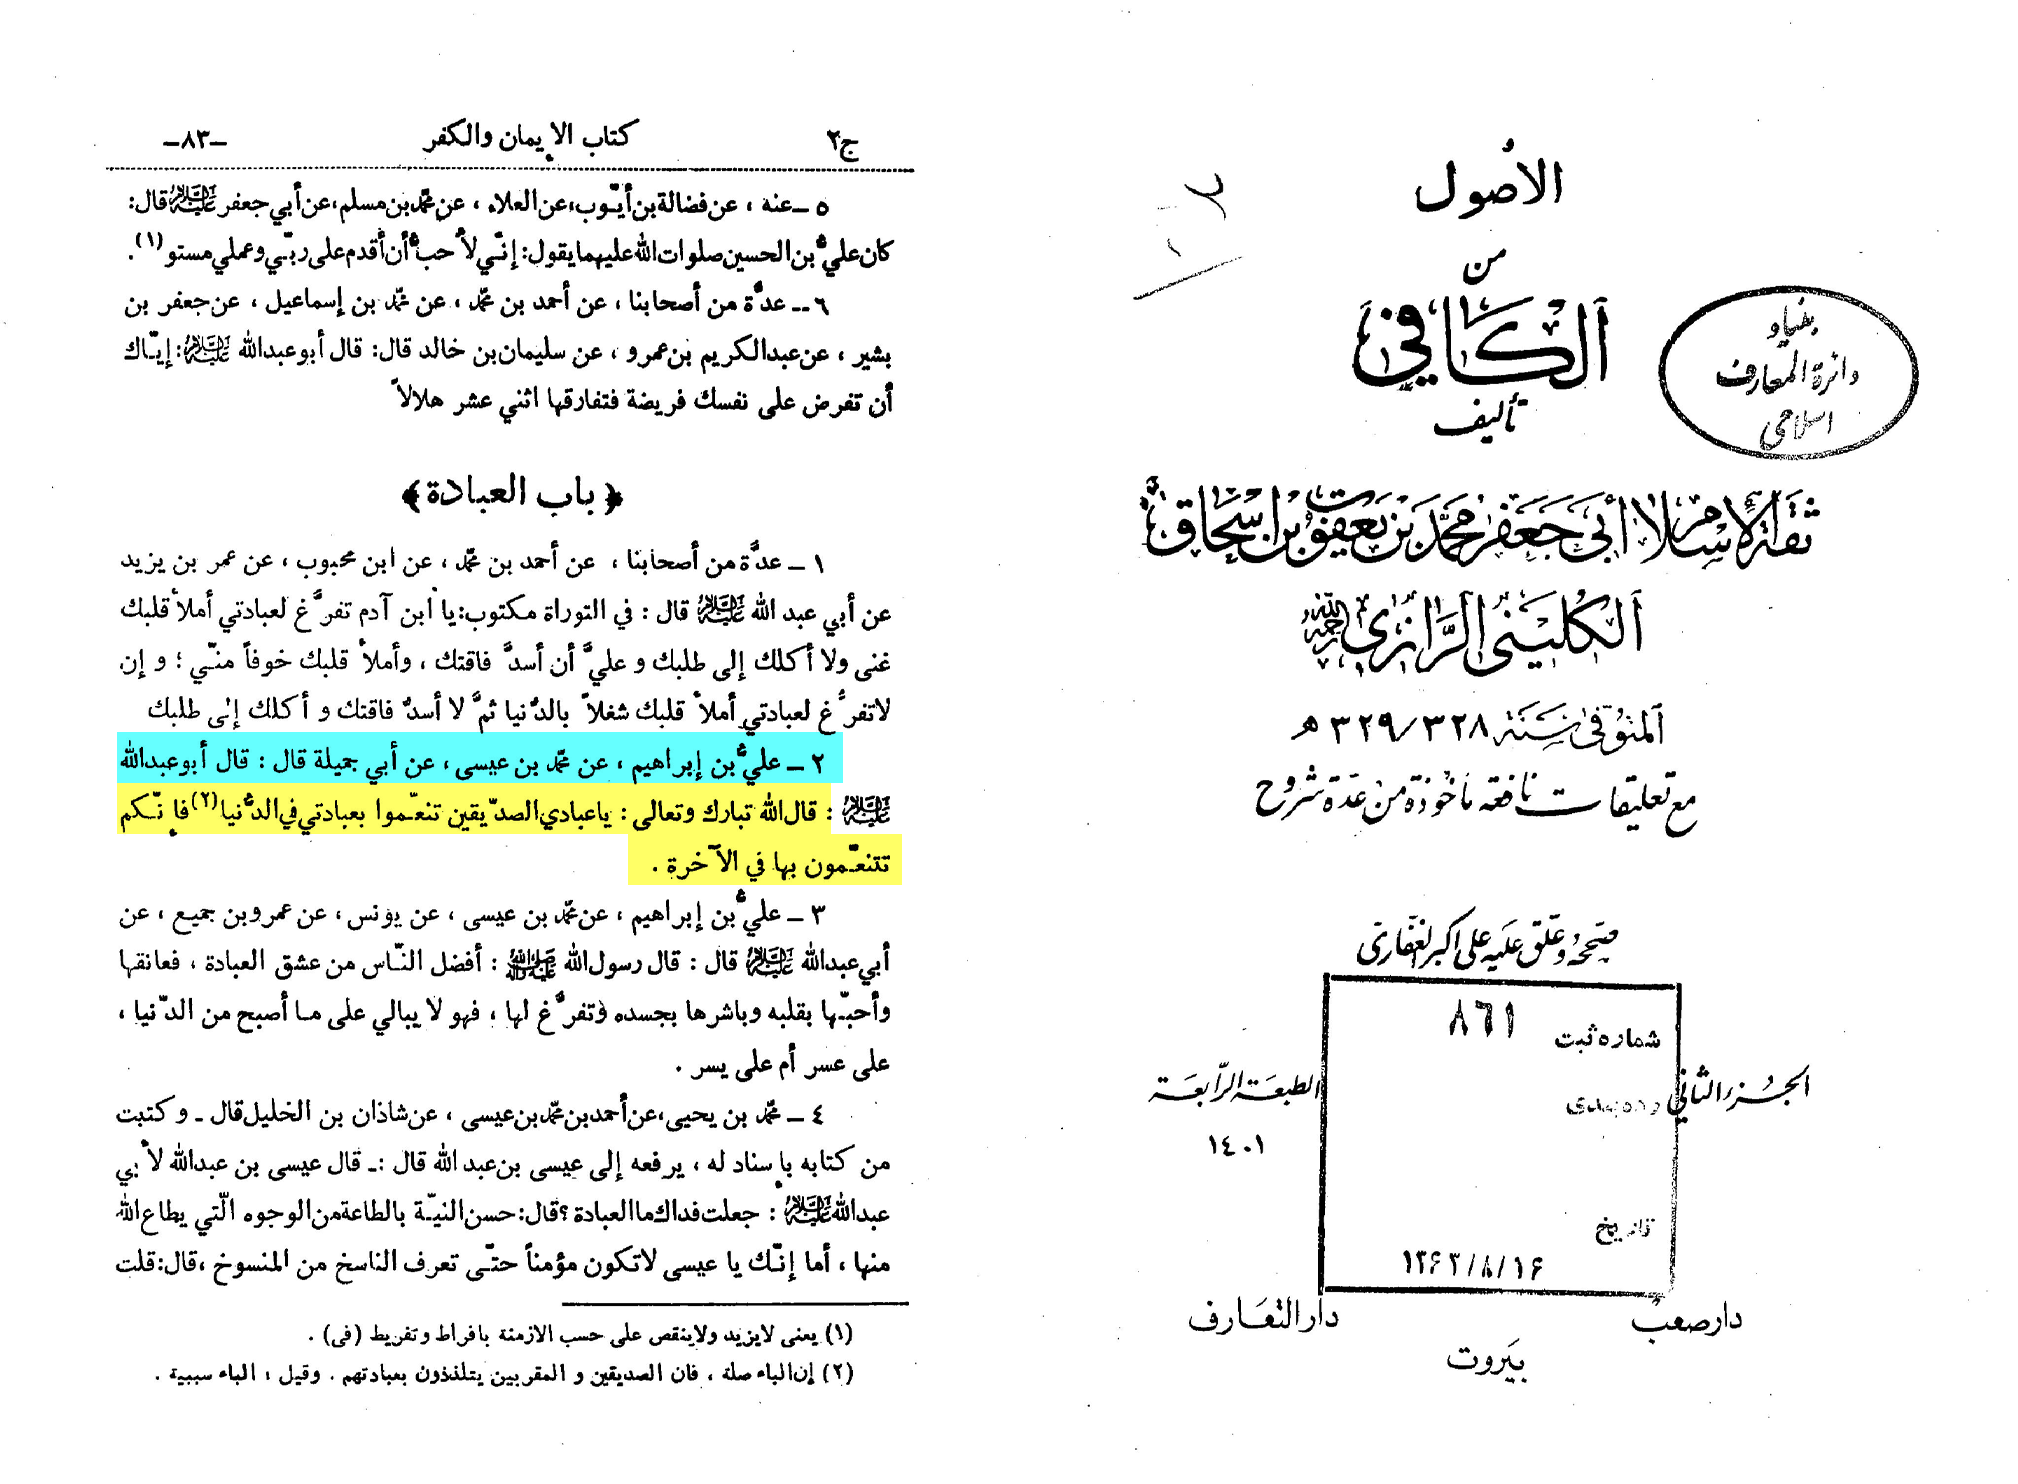 الأصول
من
الكافي
تأليف
ثقة الإسلام أبي جعفر محمد بن يعقوب بن إسحاق
الكليني الرازي رحمه الله
المتوفى سنة ٣٢٨/٣٢٩ ه
مع تعليقات نافعة مأخوذة من عدة شروح
صححه وعلق عليه علي اكبر الغفاري
الجزء الثاني
الطبعة الرابعة
١٤٠١
دار صعب
دار التعارف
بيروت
بنياد
دائرة المعارف
اسلامي
شماره ثبت ٨٦١
رده بندى
تاريخ
١٣۶٣/٨/١۶
ج٢ كتاب الإيمان والكفر -٨٣-
٥ ـ عنه ، عن فضالة بن أيّوب، عن العلاء ، عن محمّد بن مسلم، عن أبي جعفر عليه السلام قال:
كان عليُّ بن الحسين صلوات الله عليهما يقول: إنّي لأحبُّ أن أقدم على ربّي وعملي مستو (١).
٦ ـ عدَّة من أصحابنا ، عن أحمد بن محمّد ، عن محمّد بن إسماعيل ، عن جعفر بن
بشير ، عن عبدالكريم بن عمرو ، عن سليمان بن خالد قال: قال أبوعبدالله عليه السلام: إيّاك
أن تفرض على نفسك فريضة فتفارقها اثني عشر هلالاً
﴿ باب العبادة ﴾
١ ـ عدَّة من أصحابنا ، عن أحمد بن محمّد ، عن ابن محبوب ، عن عمر بن يزيد
عن أبي عبد الله عليه السلام قال : في التوراة مكتوب: يا ابن آدم تفرَّغ لعبادتي أملأ قلبك
غنى ولا أكلك إلى طلبك و عليَّ أن أسدَّ فاقتك ، وأملأ قلبك خوفاً منّي ؛ و إن
لاتفرَّغ لعبادتي أملأ قلبك شغلاً بالدُّنيا ثمَّ لا أسدُّ فاقتك و أكلك إلى طلبك
٢ ـ عليُّ بن إبراهيم ، عن محمّد بن عيسى ، عن أبي جميلة قال : قال أبوعبدالله
عليه السلام : قال الله تبارك وتعالى : ياعبادي الصدّيقين تنعّموا بعبادتي في الدُّنيا (٢) فإنّكم
تتنعّمون بها في الآخرة .
٣ ـ عليُّ بن إبراهيم ، عن محمّد بن عيسى ، عن يونس ، عن عمرو بن جميع ، عن
أبي عبدالله عليه السلام قال : قال رسول الله صلى الله عليه وآله : أفضل النّاس من عشق العبادة ، فعانقها
وأحبّها بقلبه وباشرها بجسده وتفرَّغ لها ، فهو لا يبالي على ما أصبح من الدّنيا ،
على عسر أم على يسر .
٤ ـ محمّد بن يحيى، عن أحمد بن محمّد بن عيسى ، عن شاذان بن الخليل قال ـ وكتبت
من كتابه بإسناد له ، يرفعه إلى عيسى بن عبد الله قال :ـ قال عيسى بن عبدالله لأبي
عبدالله عليه السلام : جعلت فداك ما العبادة ؟ قال: حسن النيّة بالطاعة من الوجوه الّتي يطاع الله
منها ، أما إنّك يا عيسى لاتكون مؤمناً حتّى تعرف الناسخ من المنسوخ ، قال: قلت
(١) يعنى لايزيد ولاينقص على حسب الازمنة بافراط وتفريط (فى) .
(٢) إن الباء صلة ، فان الصديقين و المقربين يتلذذون بعبادتهم . وقيل : الباء سببية .